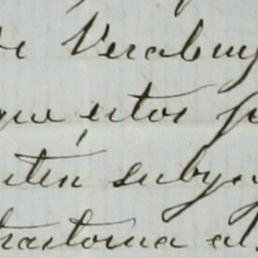 de Verabuy
que estos p
sten subyu
trastorna al